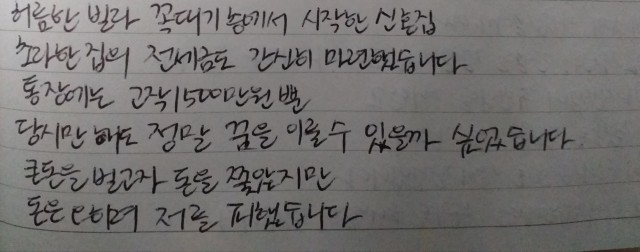 허름한 빌라 꼭대기 층에서 시작한 신혼집
초라한 집의 전세금도 간신히 마련했습니다
통장에는 고작 1500만원 뿐
당시만 해도 정말 꿈을 이룰 수 있을까 싶었습니다
큰돈을 벌고자 돈을 쫓았지만
돈은 오히려 저를 피했습니다